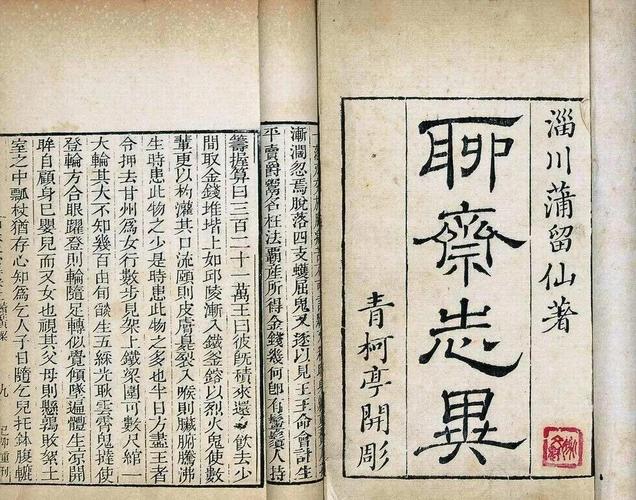 淄川蒲留仙著
聊齋志異
青柯亭開彫
漸濶忽焉脫落四支蠖屈鬼又逐以見王王命會計生
平賣爵鬻名枉法覇產所得金錢幾何卽有鬡鬚人持
籌握算曰三百二十一萬王曰彼旣積來還令飲去少
間取金錢堆堦上如邱陵漸入鐵釜鎔以烈火鬼使數
輩更以杓灌其口流頤則皮膚臭裂入喉則臟腑騰沸
生時患此物之少是時患此物之多也半日方盡王者
令押去甘州爲女行數步見架上鐵梁圍可數尺綰一
大輪其大不知幾百由旬燄生五綵光耿雲霄鬼撻使
登輪方合眼躍登則輪隨足轉似覺傾墜遍體生涼開
眸自顧身已嬰兒而又女也視其父母則懸鶉敗絮土
室之中瓢杖猶存心知爲乞人子日隨乞兒托鉢腹轆